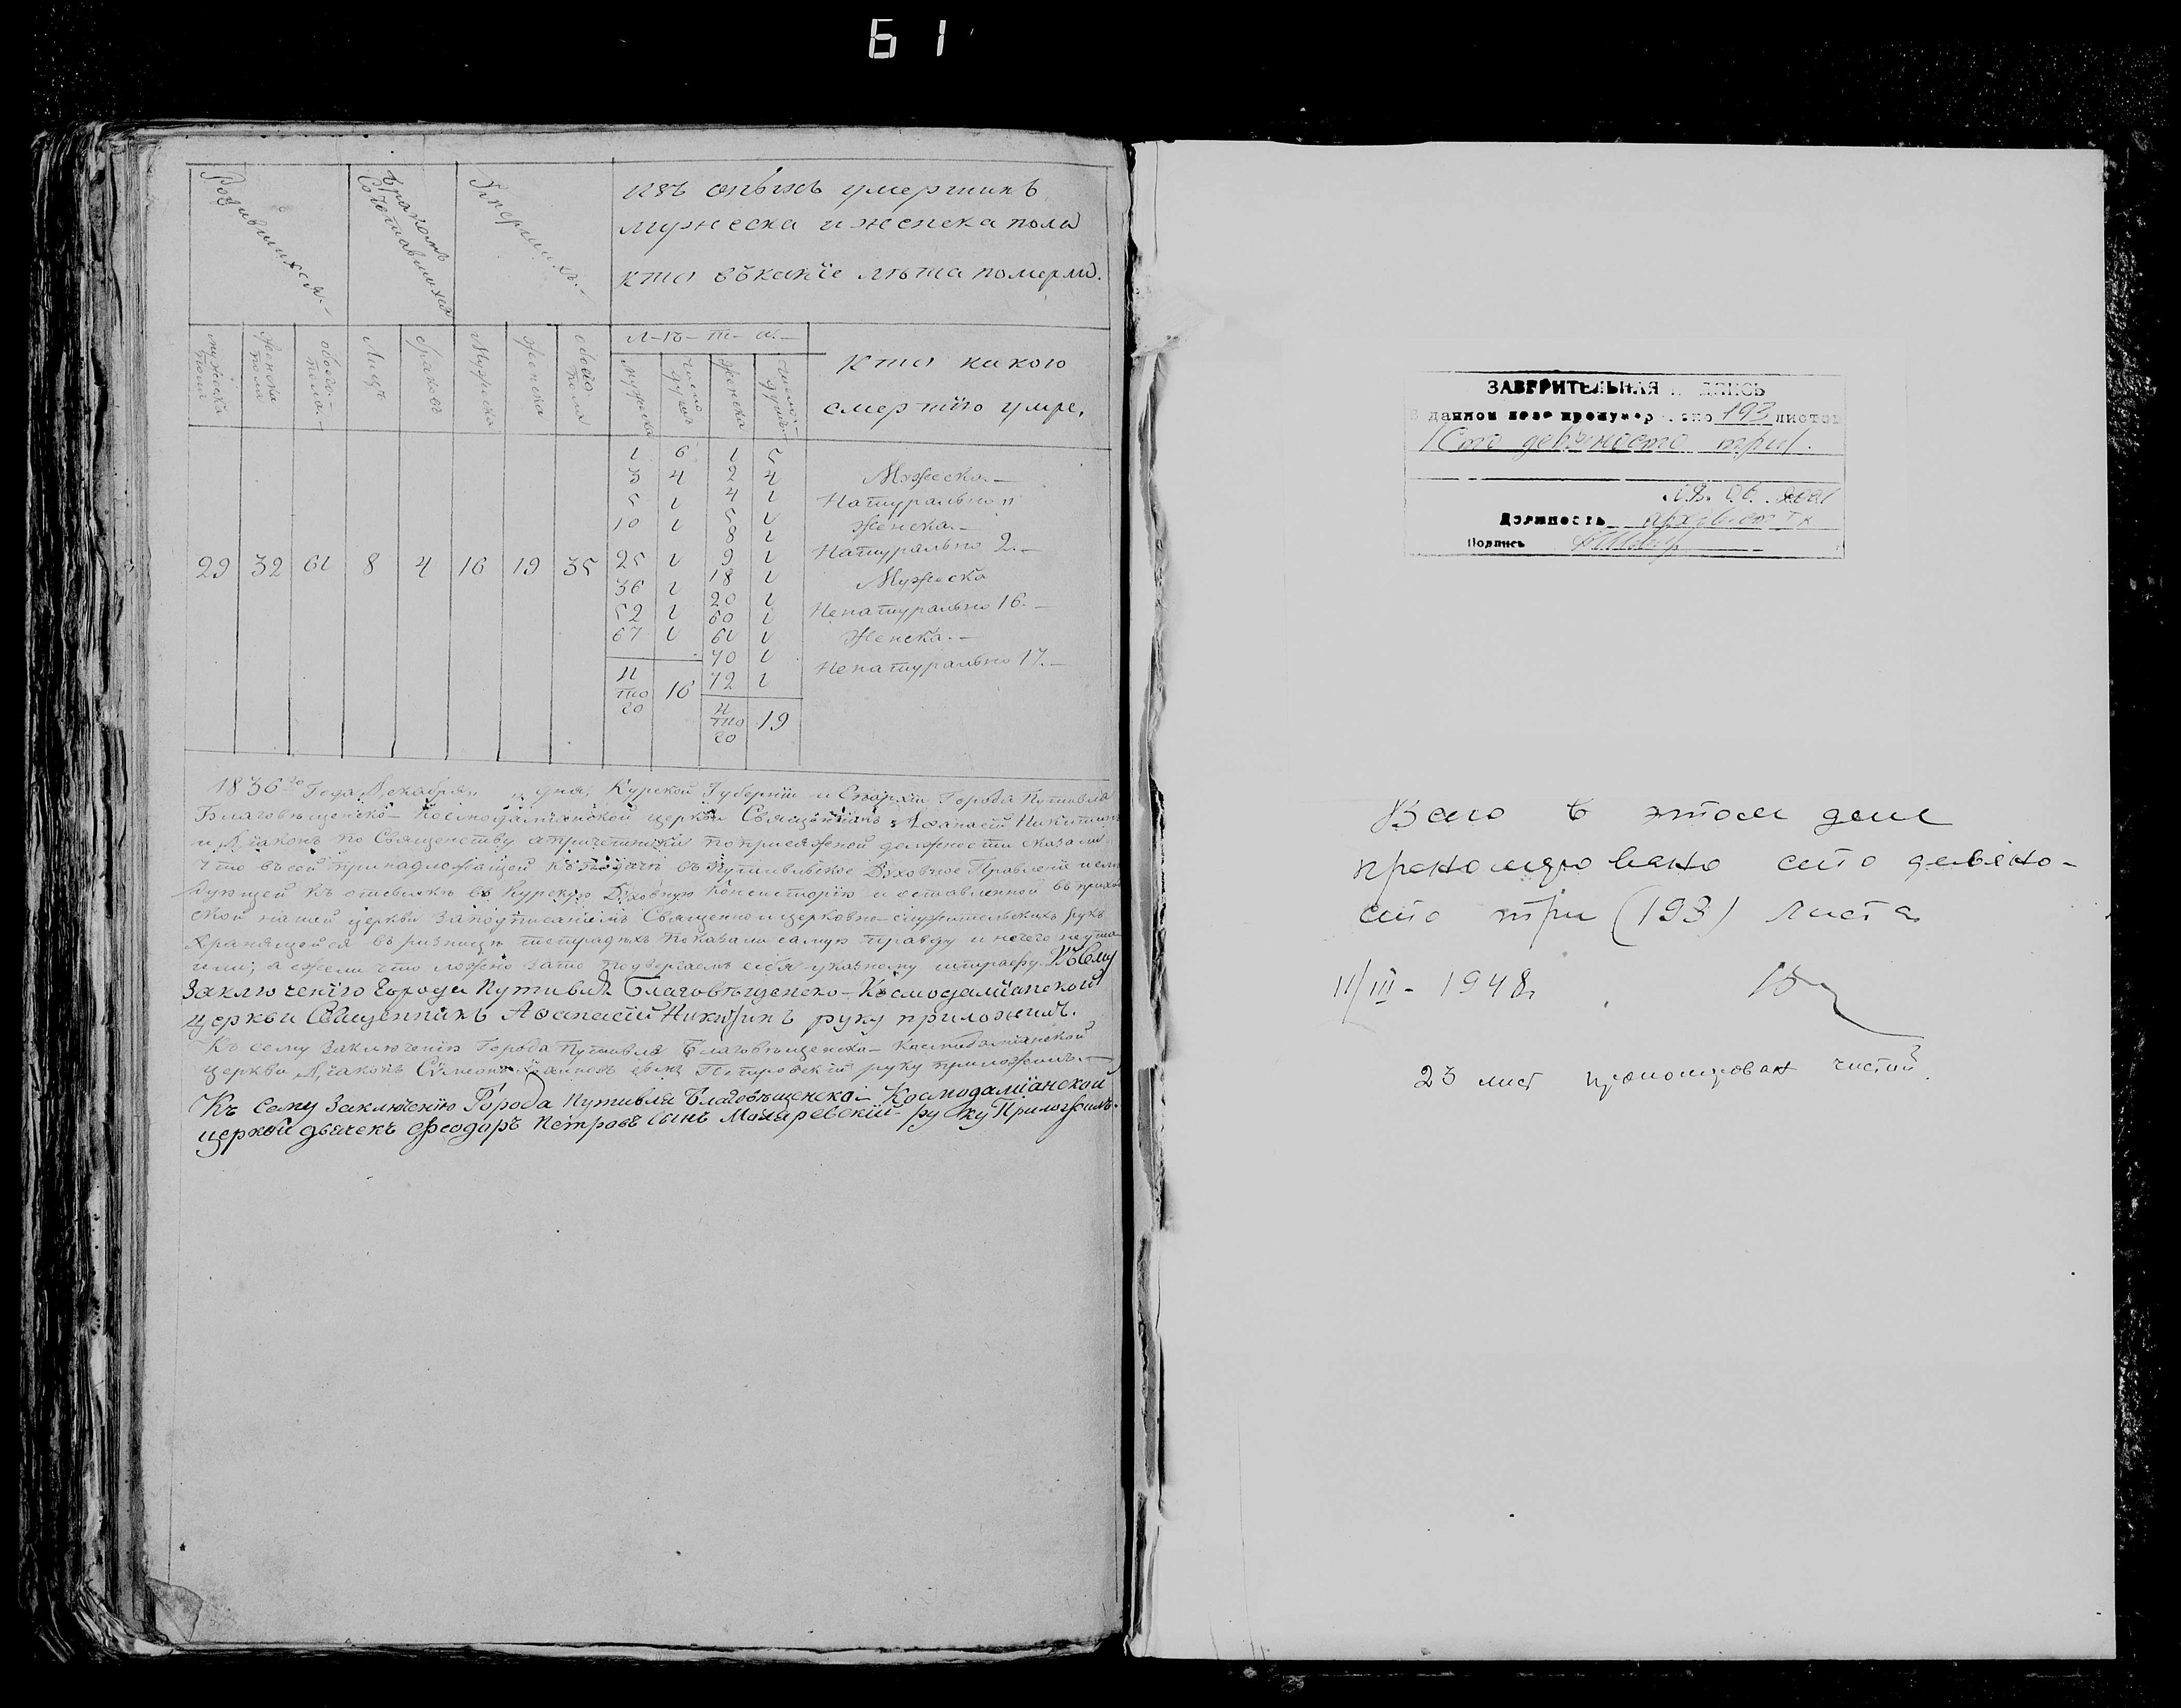 61
Родившихся.
бракомъ Сочетавшихся
Умершихъ.
изъ оныхъ умершихъ
мужеска и женска пола
кто въ какiе лѣта померли.
мужеска пола
женска пола
обоего пола
Лицъ
браковъ
Мужеска
женска
обоего пола
Л-ѣ-т-а.
мужеска
число душъ
женска
число душъ
Кто какою
смертiю умре,
29 32 61 8 4 16 19 35
1 6 1 5
3 4 2 4
5 1 4 1
10 1 5 1
8 1
25 1 9 1
36 1 18 1
52 1 20 1
67 1 60 1
61 1
70 1
Итого 16 72 1
Итого 19
Мужеска.
Натурально
Женска.
Натурально 2.
Мужеска
Ненатурально 16.
Женска.
Ненатурально 17.
1836го Года Декабря дня, Курской Губернiи и Епархiи Города Путивля
Благовѣщенско-Космодамiанской церкви Священникъ Аѳанасiй Никитинъ
и Дiаконъ по Священству а причетники по присяжной должности сказали
что въ сей принадлежащей къ подачи въ Путивльское Духовное Правленiе
дующей къ отсылкѣ въ Курскую Духовную Консисторiю и оставленной въ приход
ской нашей церкви за подписанiемъ Священно и церковно-служительскихъ рукъ
хранящейся въ ризницѣ тетрадѣхъ показали самую правду и нечего не ута
или; а ежели что ложно зато подвергаемъ себя указному штрафу. Къ Сему
Заключенiю Города Путивля Благовѣщенско-Космодамiанской
Церкви Священникъ Аѳанасiй Никитинъ руку приложилъ.
Къ сему Заключенiю Города Путивля Благовѣщенско-Космодамiанской
церкви Дiаконъ сынъ руку приложилъ.
Къ Сему Заключенiю Города Путивля Благовѣщенско-Космодамiанской
церкви дьячекъ Ѳеодоръ Петровъ Сынъ Макаревскiй руку Приложилъ.
ЗАВЕРИТЕЛЬНАЯ НАДПИСЬ
В данном деле пронумеровано 193 листов
/Сто девяносто три/.
Должность архивист
Подпись
Всего в этом деле
прономеровано сто девено-
сто три (193) листа
11/III - 1948г
23 лист прономерован чистый.